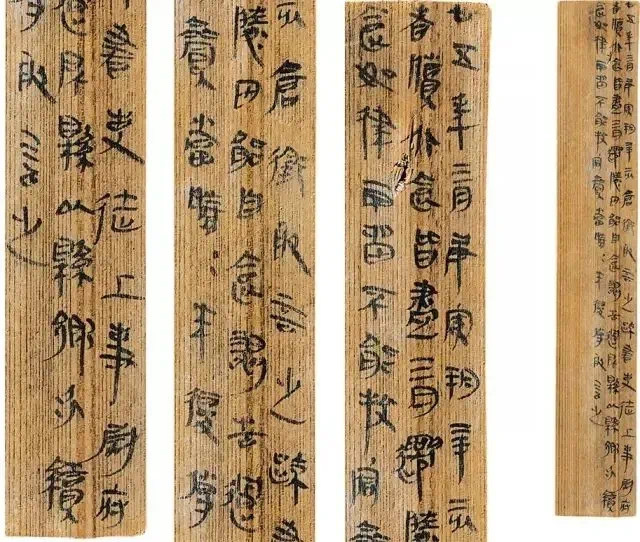 卅五年三月庚寅朔辛亥倉銜敢言之疏書吏徒上事尉府
者牘北食皆盡三月遷陵田能自食謁告過所縣以縣鄉次續
食如律雨留不能投宿齎當騰=來復傳敢言之